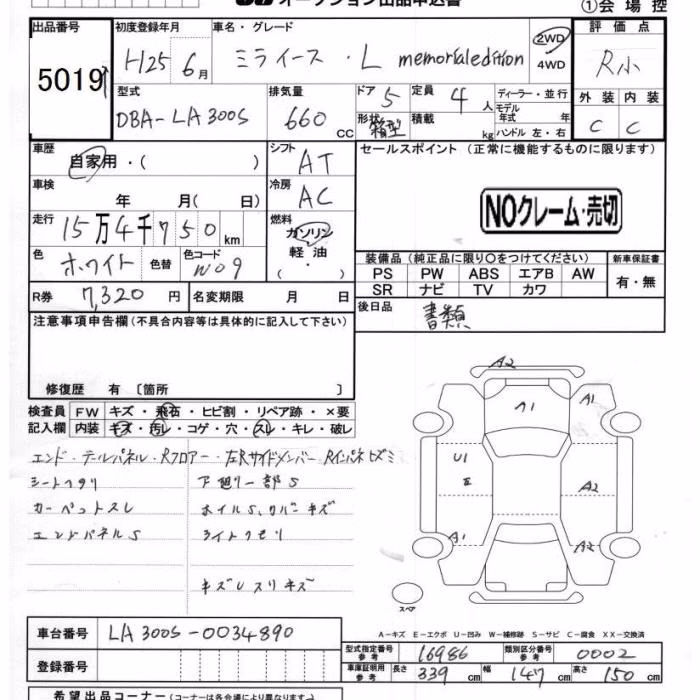 オークション出品申込書 ①会場控
出品番号 初度登録年月 車名・グレード 評価点
5019 H25 6月 ミライース・L memorialedition 2WD 4WD R小
型式 排気量 ドア 定員 ディーラー・並行 外装 内装
DBA-LA300S 660 CC 5 4人 モデル年式 年式 C C
形状 箱型 積載 kg ハンドル 左・右
車歴 シフト セールスポイント (正常に機能するものに限ります)
自家用・( ) AT
車検 冷房
年 月( 日) AC NOクレーム・売切
走行 燃料
15万4千750km ガソリン
色 色替 色コード 軽油
ホワイト W09 ・( )
装備品(純正品に限り○をつけてください) 新車保証書
PS PW ABS エアB AW 有・無
SR ナビ TV カワ
R券 7,320円 名変期限 月 日 後日品 書類
注意事項申告欄(不具合内容等は具体的に記入して下さい)
修復歴 有 〔箇所 〕
検査員 FW キズ・飛石・ヒビ割・リペア跡・×要
記入欄 内装 キズ・汚レ・コゲ・穴・スレ・キレ・破レ
エンド・テールパネル・Rフロアー・左Rサイドメンバー・Rインパネヒズミ
シートヘタリ 下廻り一部S
カーペットスレ ホイルS、カバーキズ
エンドパネルS ライトクモリ
キズUスリキズ
A2
A1 A1
U1
A2
A1 A2
スペア
A-キズ E-エクボ U-凹み W-補修跡 S-サビ C-腐食 XX-交換済
車台番号 LA300S-0034890
登録番号
型式指定番号 参考 16986 類別区分番号 参考 0002
車庫証明用 参考 長さ 339cm 幅 147cm 高さ 150cm
希望出品コーナー (コーナーは各会場で異なります。)